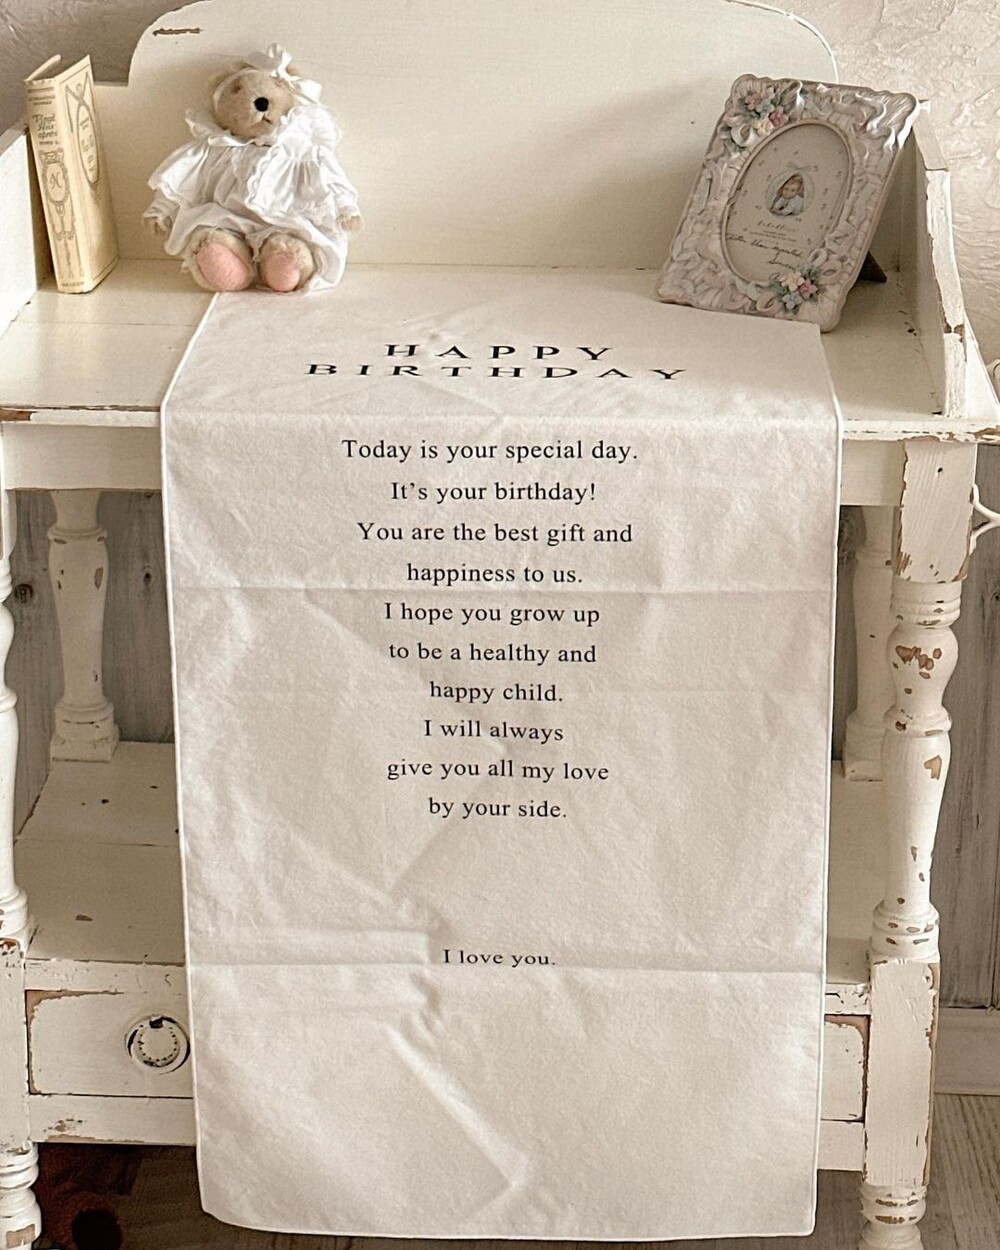 HAPPY
BIRTHDAY
Today is your special day.
It's your birthday!
You are the best gift and
happiness to us.
I hope you grow up
to be a healthy and
happy child.
I will always
give you all my love
by your side.
I love you.